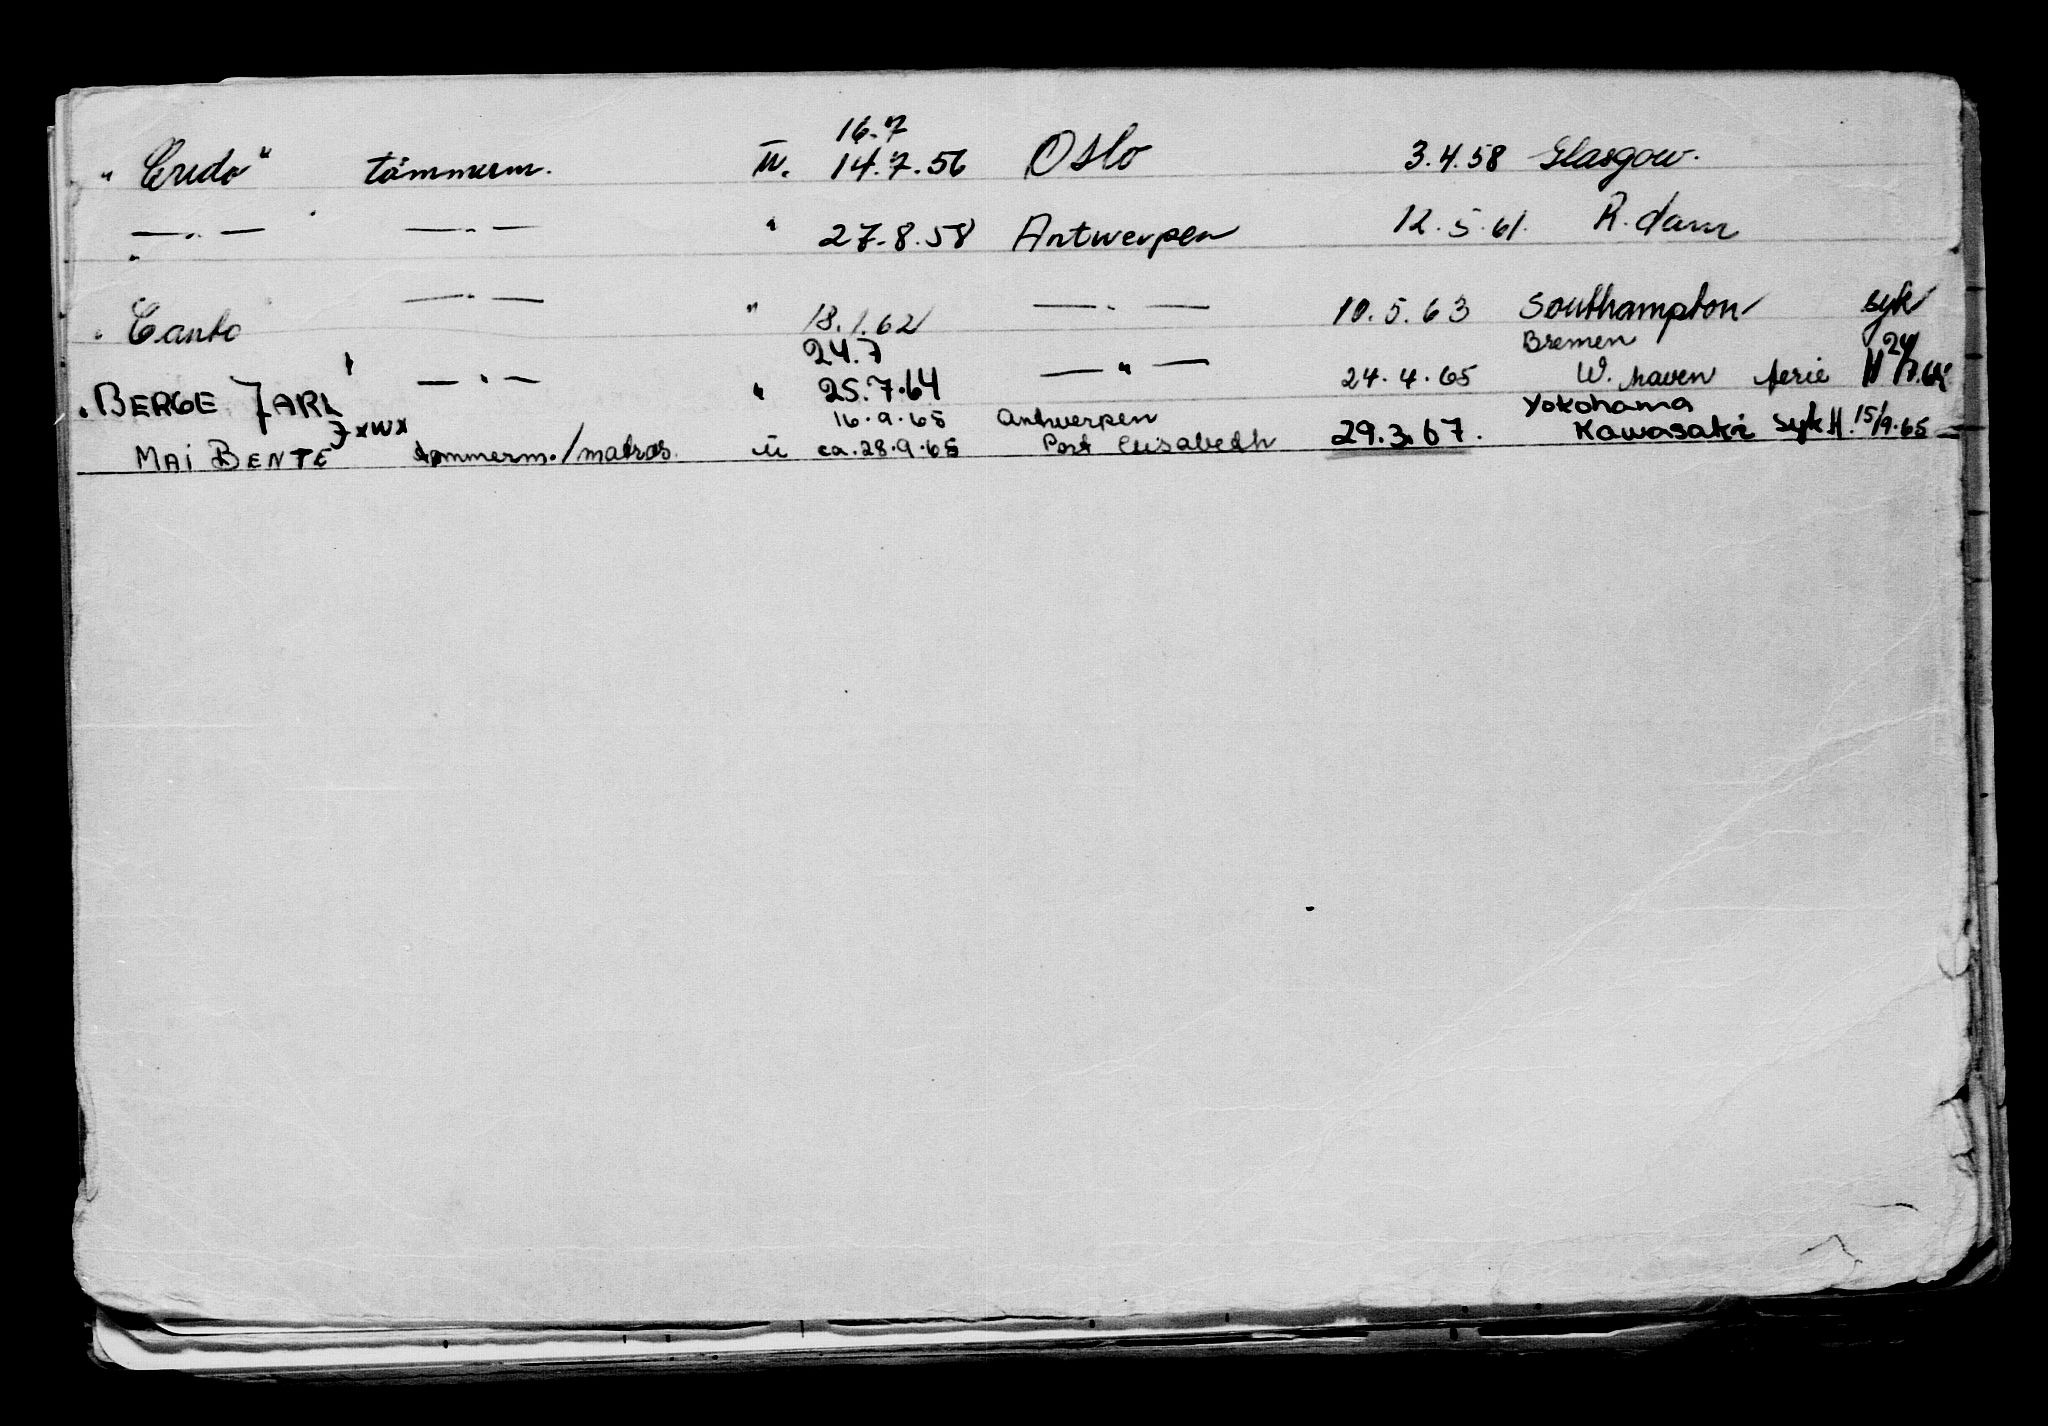 16.7
" Credo" tömmerm. u. 14.7.56 Oslo 3.4.58 Glasgow.
— " — — " — " 27.8.58 Antwerpen 12.5.61. R.dam
" Canto — " — " 18.1.62 — " — 10.5.63 Southampton syk
24.7 Bremen
" BERGE JARL — " — " 25.7.64 — " — 24.4.65 W. haven ferie H 24/
JXWX 16.9.65 Antwerpen Yokohama
MAI BENTE tømmerm./matros. u ca. 28.9.65 Port Elisabeth 29.3.67. Kawasaki syk H. 15/9.65